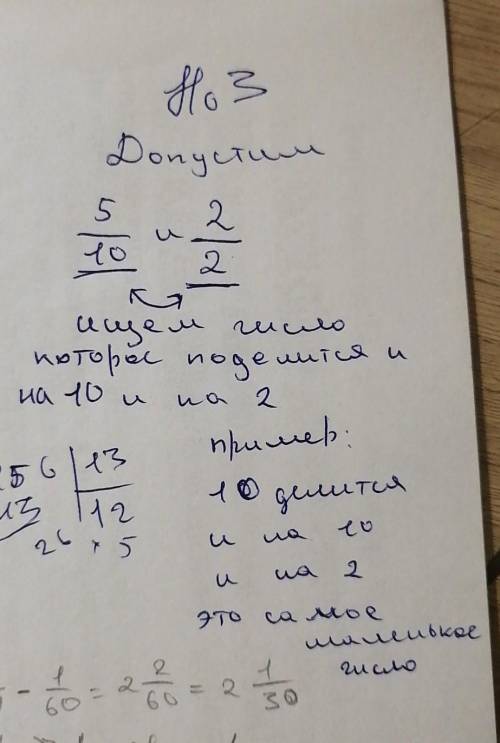 НОЗ
Допустим
5/10 и 2/2
ищем число
которое поделится и
на 10 и на 2
пример:
56 | 13
10 делится
13 | 12
и на 10
26 × 5
и на 2
это самое
маленькое
число
- 1/60 = 2 2/60 = 2 1/30